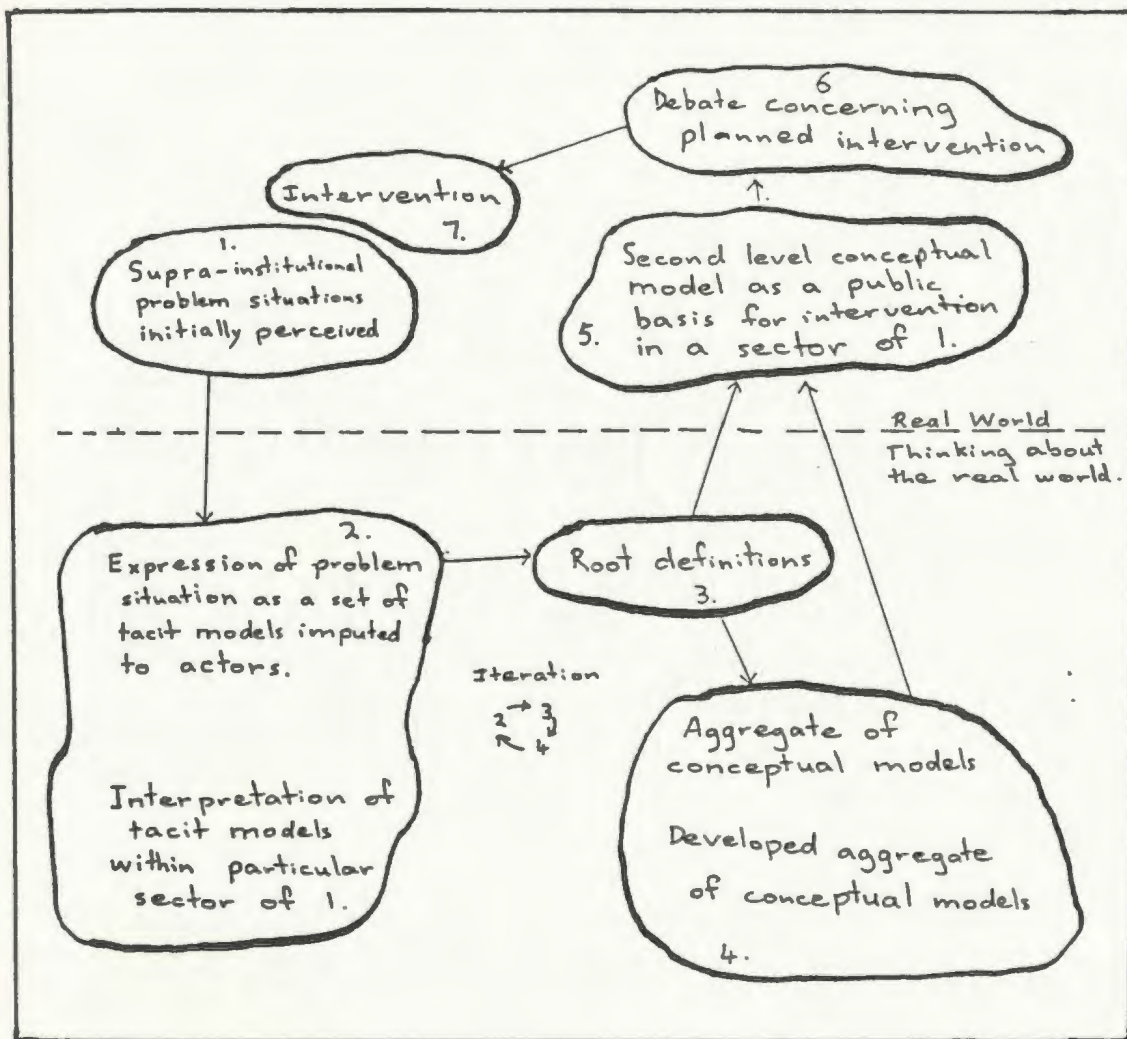 6
Debate concerning
planned intervention
Intervention
7.
1.
Supra-institutional
problem situations
initially perceived
Second level conceptual
model as a public
basis for intervention
5.
in a sector of 1.
Real World
Thinking about
the real world.
2.
Expression of problem
situation as a set of
tacit models imputed
to actors.
Interpretation of
tacit models
within particular
sector of 1.
Root definitions
3.
Iteration
2 3
4
Aggregate of
conceptual models
Developed aggregate
of conceptual models
4.